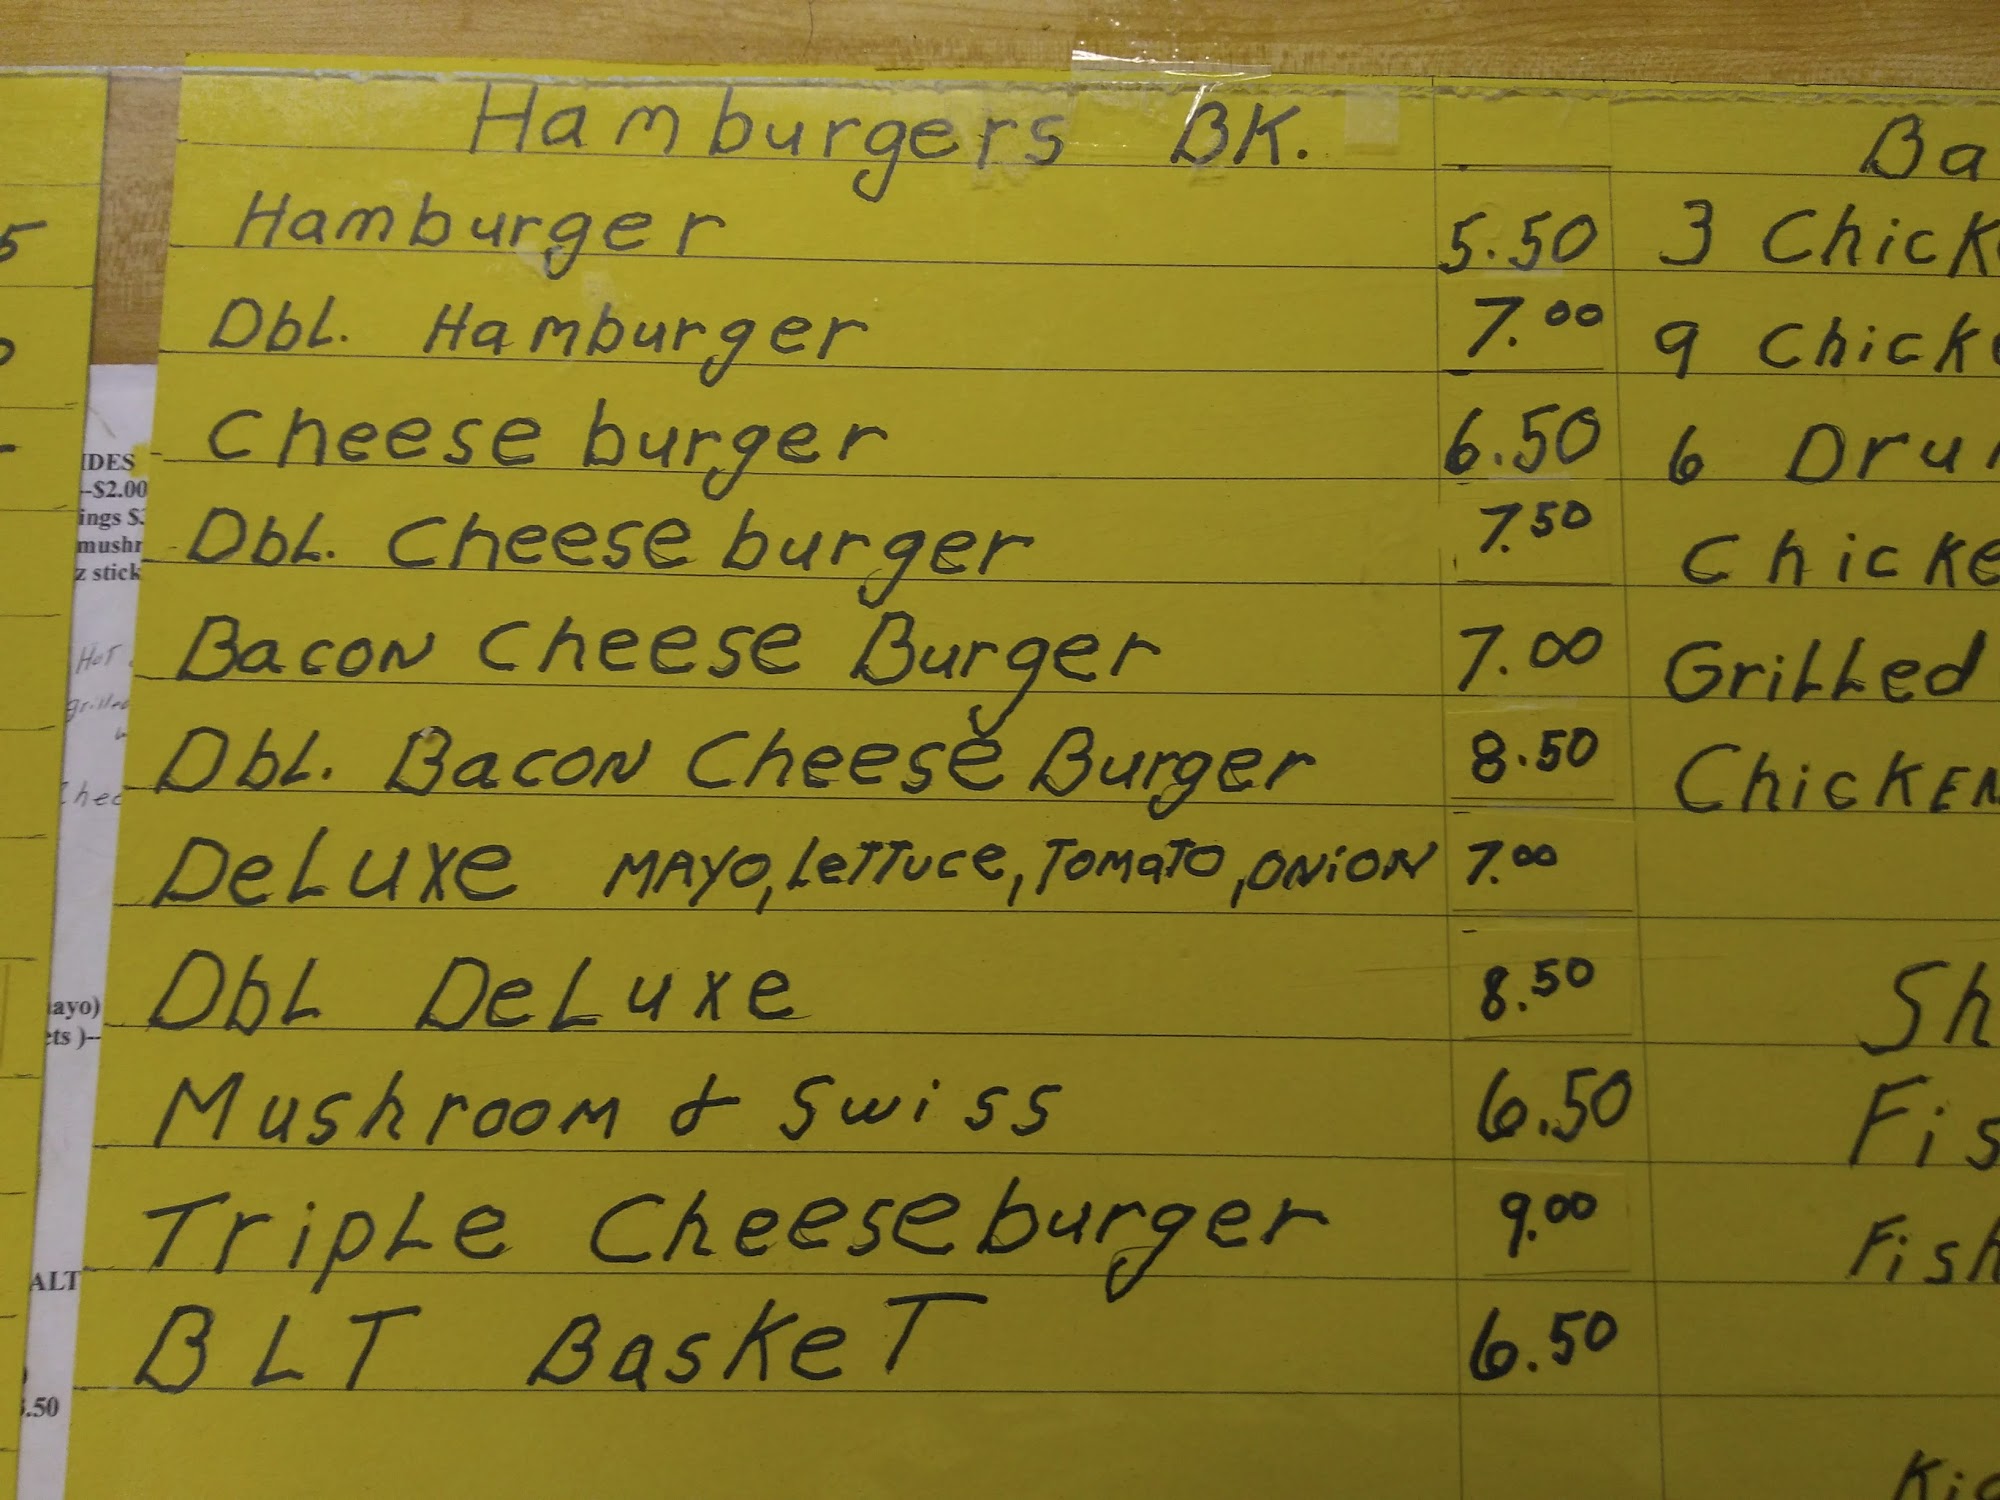 Hamburgers BK.
Hamburger 5.50
Dbl. Hamburger 7.00
Cheese burger 6.50
Dbl. Cheese burger 7.50
Bacon Cheese Burger 7.00
Dbl. Bacon Cheese Burger 8.50
DeLuxe MAYO, Lettuce, Tomato, ONiON 7.00
DbL DeLuxe 8.50
Mushroom & Swiss 6.50
Triple Cheeseburger 9.00
BLT Basket 6.50
3 Chick
9 Chick
6 Dru
Chicke
Grilled
Chicken
Sh
Fis
Fish
IDES
-$2.00
ings $
mushr
z stick
Hot
grilled
ayo)
ets )--
ALT
.50